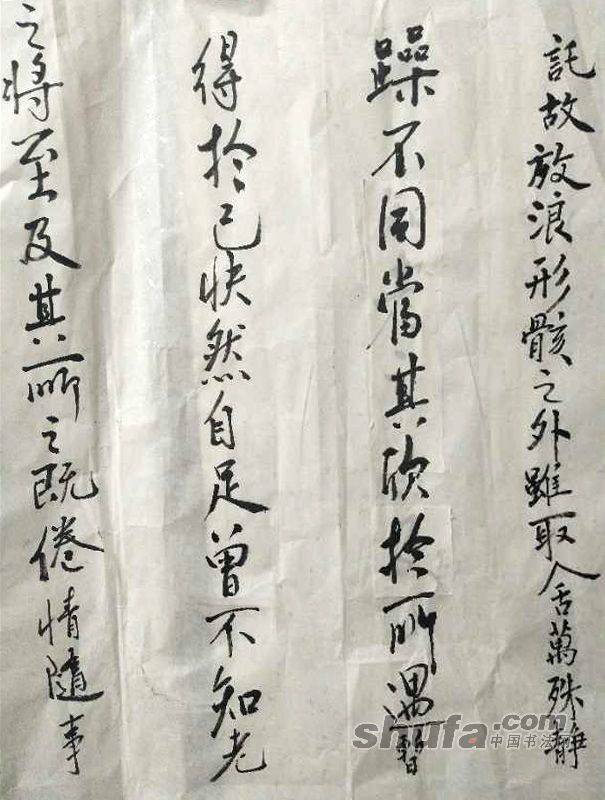 託故放浪形骸之外雖取舍萬殊靜
躁不同當其欣於所遇暫
得於己快然自足曾不知老
之將至及其所之既倦情隨事
shufa.com
中国书法网